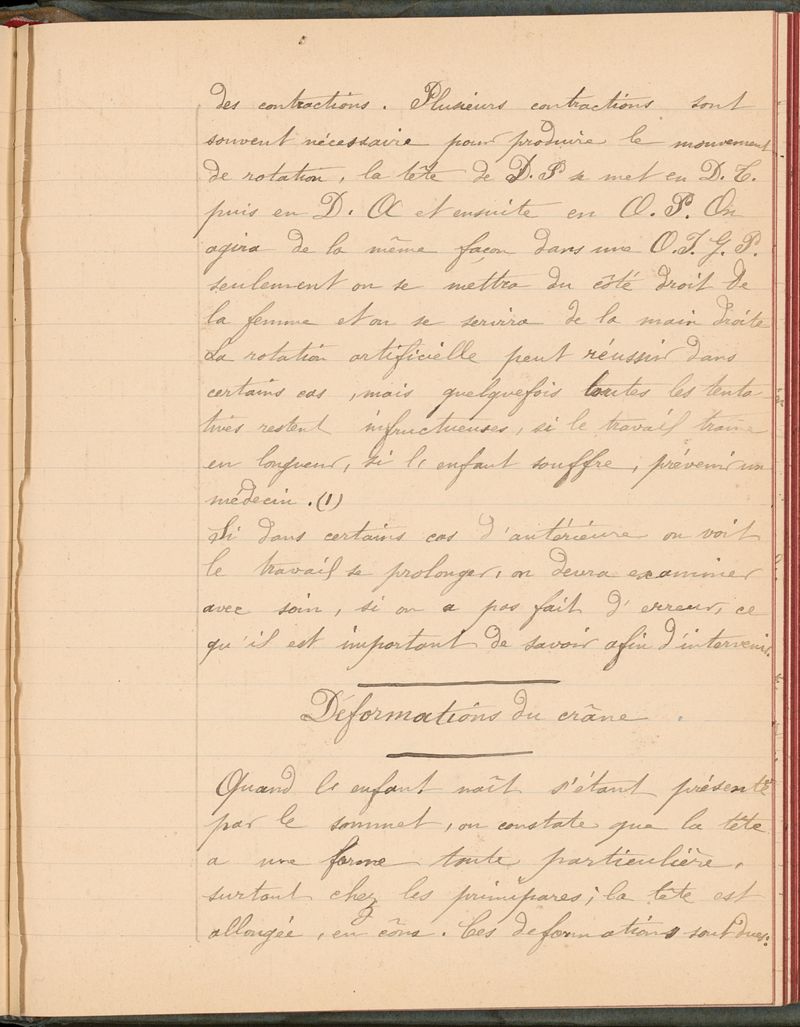 des contractions. Plusieurs contractions sont
souvent nécessaire pour produire le mouvement
de rotation, la tête de D.P se met en D.T.
puis en D. A et ensuite en O.P. On
agira de la même façon dans une O.I.G.P.
seulement on se mettra du côté droit de
la femme et on se servira de la main droite
La rotation artificielle peut réussir dans
certains cas, mais quelquefois toutes les tenta
tives restent infructueuses, si le travail traine
en longueur, si l'enfant souffre, prévenir un
médecin.(1)
Si dans certains cas d'antérieure on voit
le travail se prolonger, on devra examiner
avec soin, si on a pas fait d'erreur, ce
qu'il est important de savoir afin d'intervenir.
Déformations du crâne.
Quand l'enfant naît s'étant présenté
par le sommet, on constate que la tête
a une forme toute particulière,
surtout chez les primipares; la tête est
allongée, en cône. Ces déformations sont dues: